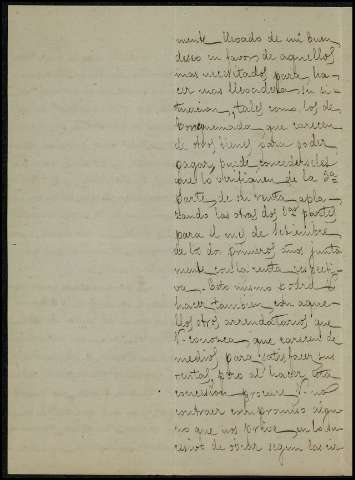 mente llevado de mi buen
deseo en favor de aquellos
mas necesitados para ha-
cer mas llevadera su si-
tuacion, tales como los de
que carecen
de otros bienes para poder
pagar, puede concederseles
que lo verifiquen de la 3ª
parte de su renta apla-
zando las otras dos 3as partes
para el mes de Setiembre
de los dos primeros años junta
mente con la renta respecti-
va. Esto mismo podrá V.
hacer tambien con aque-
llos otros arrendatarios que
V. conozca que carecen de
medios para satisfacer sus
rentas, pero al hacer esta
concesion procure V. no
contraer compromiso algu-
no que nos prive en lo su-
cesivo de obrar segun las cir